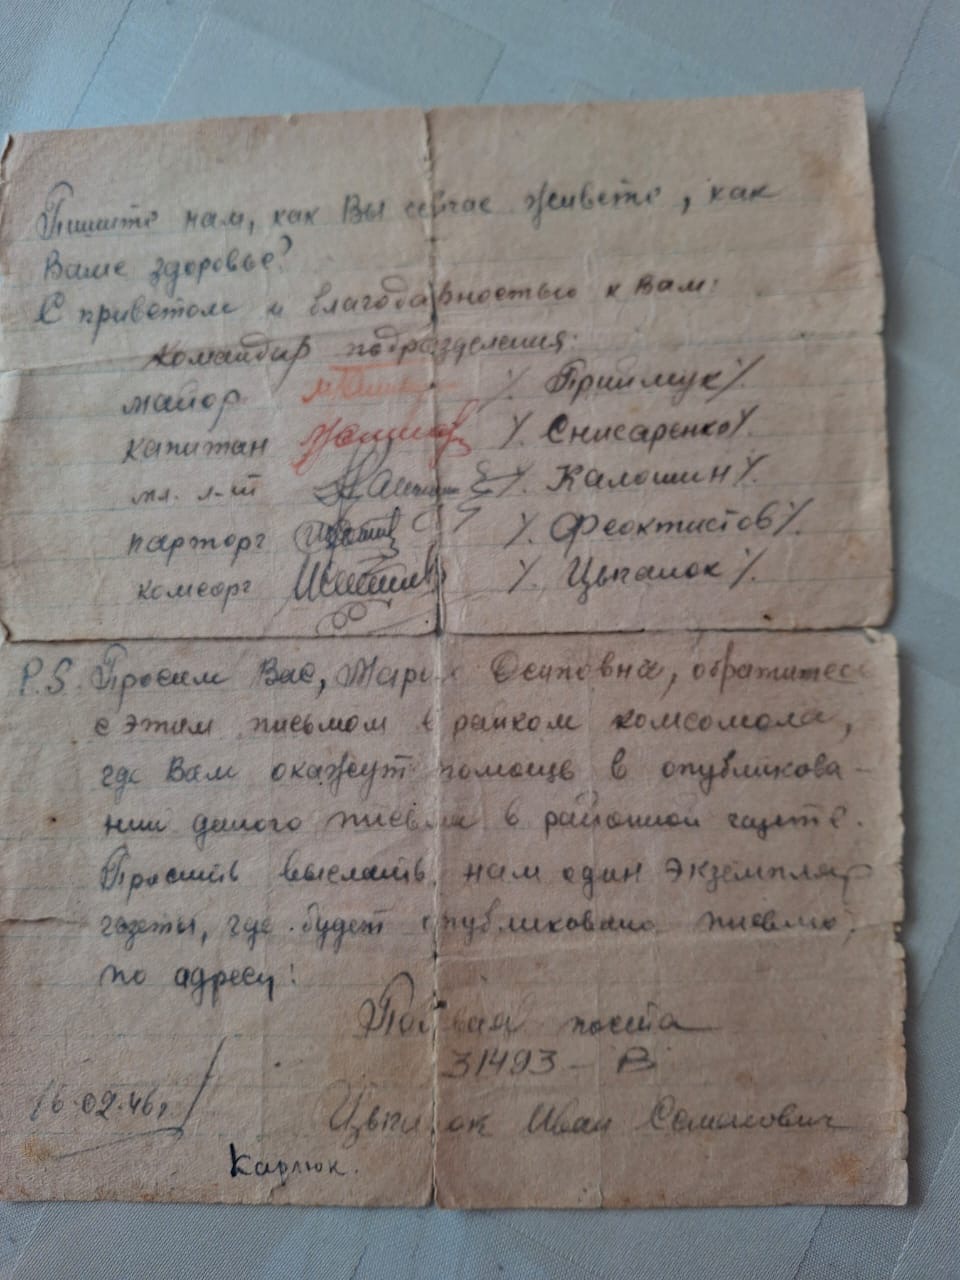 Пишите нам, как Вы сейчас живете, как
Ваше здоровье?
С приветом и благодарностью к Вам:
Командир подразделения:
майор /. Приймук /.
капитан /. Снисаренко /.
мл. л-т /. Калошин /.
парторг /. Феоктистов /.
комсорг /. Цыганок /.
P.S. Просим Вас, Мария Осиповна, обратитесь
с этим письмом в райком комсомола,
где Вам окажут помощь в опубликова-
нии даного письма в районной газете.
Просить выслать нам один экземпляр
газеты, где будет опубликовано письмо,
по адресу:
Полевая почта
31493 – В
16.02.46г
Цыганок Иван Семенович
Карлюк.